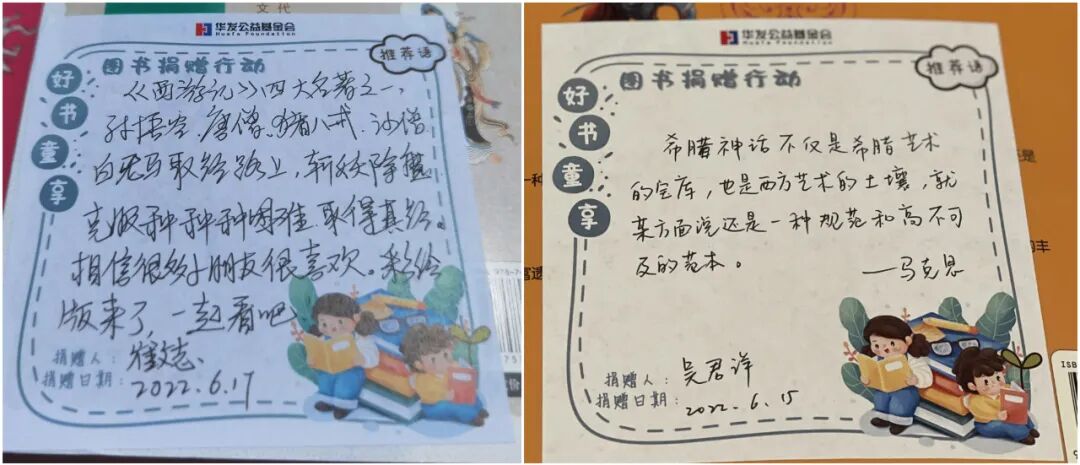 文代
华发公益基金会
Huafa Foundation
推荐语
图书捐赠行动
好书童享
《西游记》四大名著之一,
孙悟空、唐僧、猪八戒、沙僧、
白龙马取经路上,斩妖除魔
克服种种种困难、取得真经。
相信很多小朋友很喜欢。彩绘
版来了,一起看吧
捐赠人:
捐赠日期: 2022.6.17
华发公益基金会
Huafa Foundation
推荐语
图书捐赠行动
好书童享
希腊神话不仅是希腊艺术
的宝库,也是西方艺术的土壤,就
某方面说还是一种规范和高不可
及的范本。
——马克思
捐赠人: 吴君洋
捐赠日期: 2022.6.15
一种
富遗
的丰
ISB